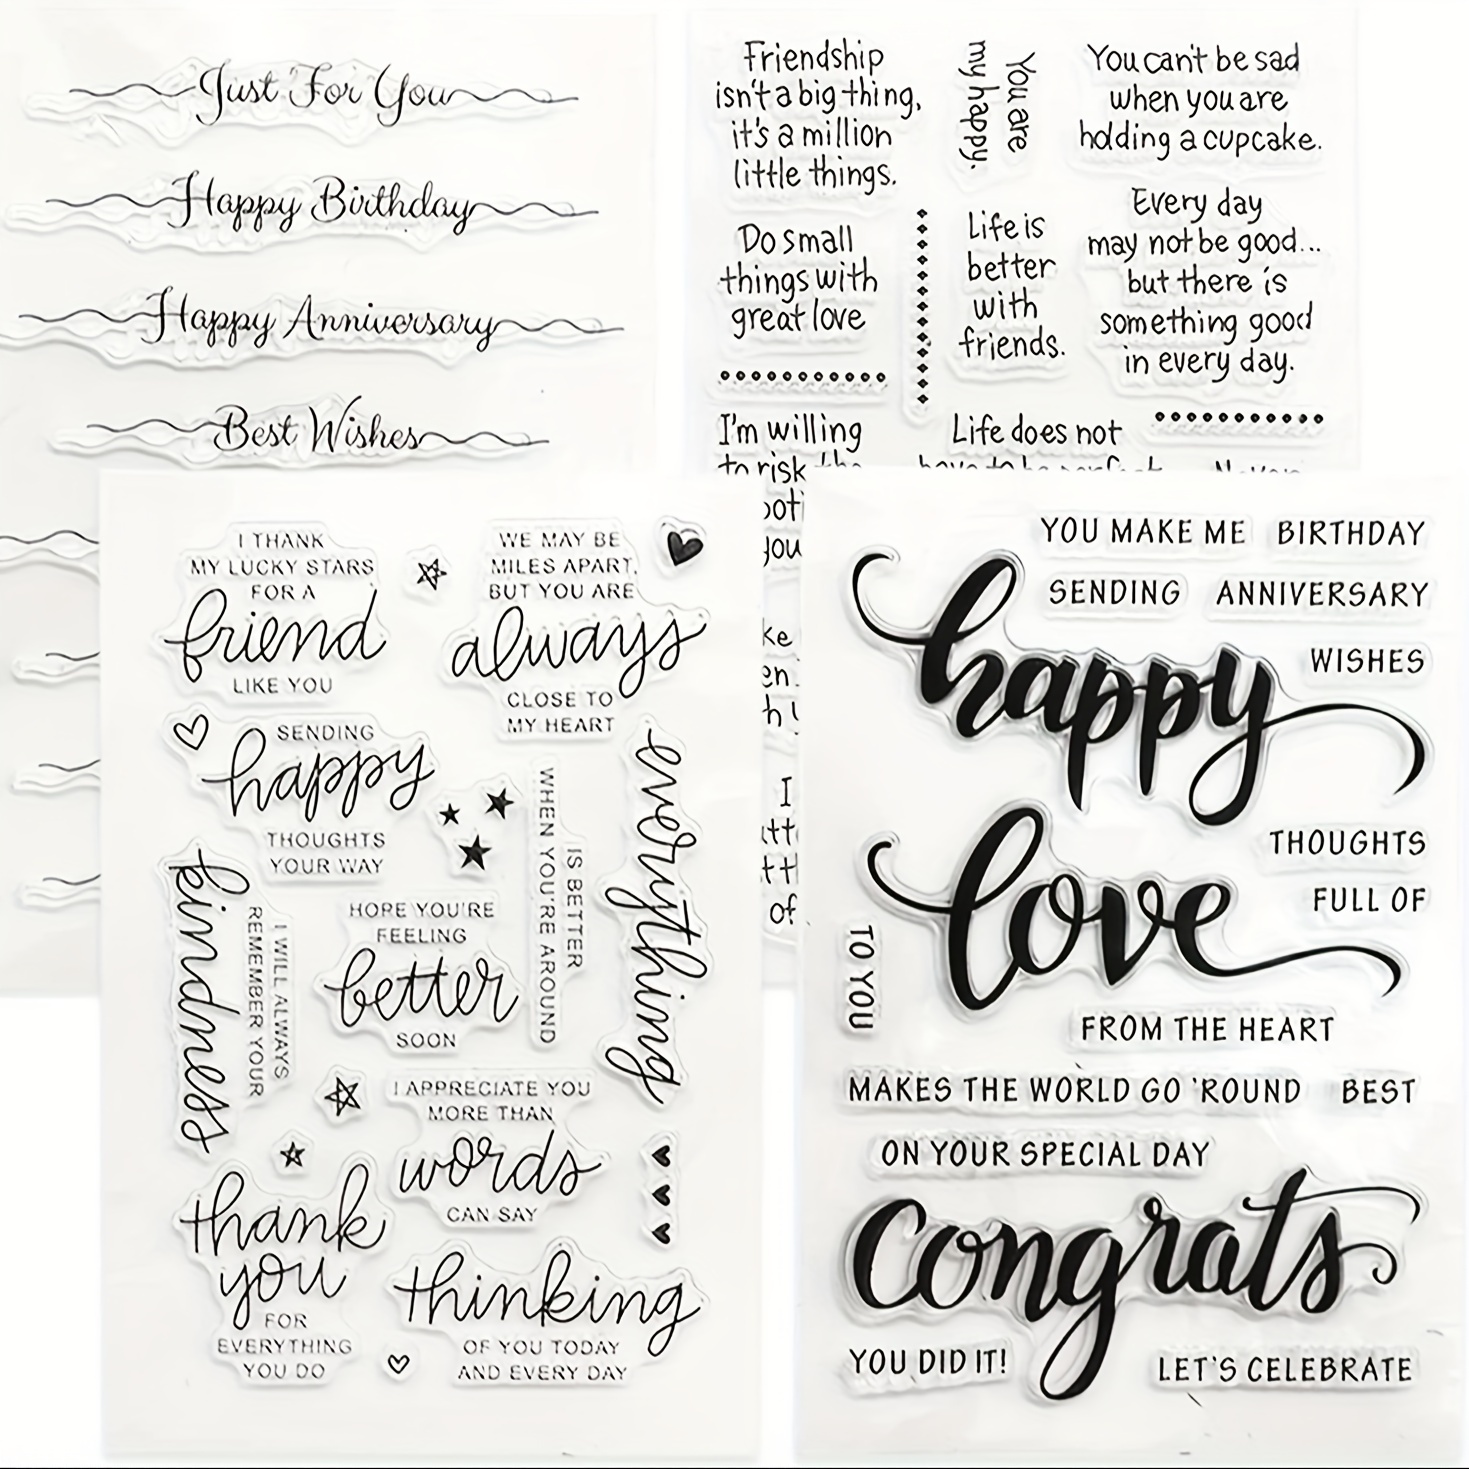 Just For You
Happy Birthday
Happy Anniversary
Best Wishes
Friendship
isn't a big thing,
it's a million
little things.
You are
my happy.
You can't be sad
when you are
holding a cupcake.
Do small
things with
great love
Life is
better
with
friends.
Every day
may not be good...
but there is
something good
in every day.
I'm willing
to risk the
you
Life does not
have to be perfect
I
of
I THANK
MY LUCKY STARS
FOR A
friend
LIKE YOU
WE MAY BE
MILES APART,
BUT YOU ARE
always
CLOSE TO
MY HEART
SENDING
happy
THOUGHTS
YOUR WAY
everything
IS BETTER
WHEN YOU'RE AROUND
I WILL ALWAYS
REMEMBER YOUR
kindness
HOPE YOU'RE
FEELING
better
SOON
I APPRECIATE YOU
MORE THAN
words
CAN SAY
thank
you
FOR
EVERYTHING
YOU DO
thinking
OF YOU TODAY
AND EVERY DAY
YOU MAKE ME
BIRTHDAY
SENDING
ANNIVERSARY
happy
WISHES
THOUGHTS
FULL OF
love
TO YOU
FROM THE HEART
MAKES THE WORLD GO 'ROUND
BEST
ON YOUR SPECIAL DAY
congrats
YOU DID IT!
LET'S CELEBRATE